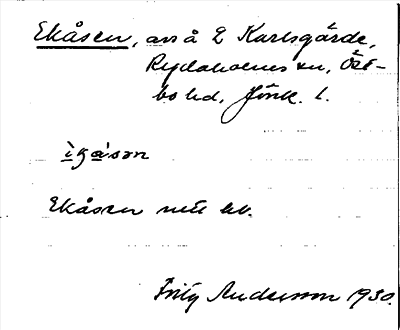 Ekåsen, avs å 2 Karlsgärde,
Rydaholms sn, Öst-
bo hd, Jönk. l.
Ekåsen
Fritz Andersson 1930.